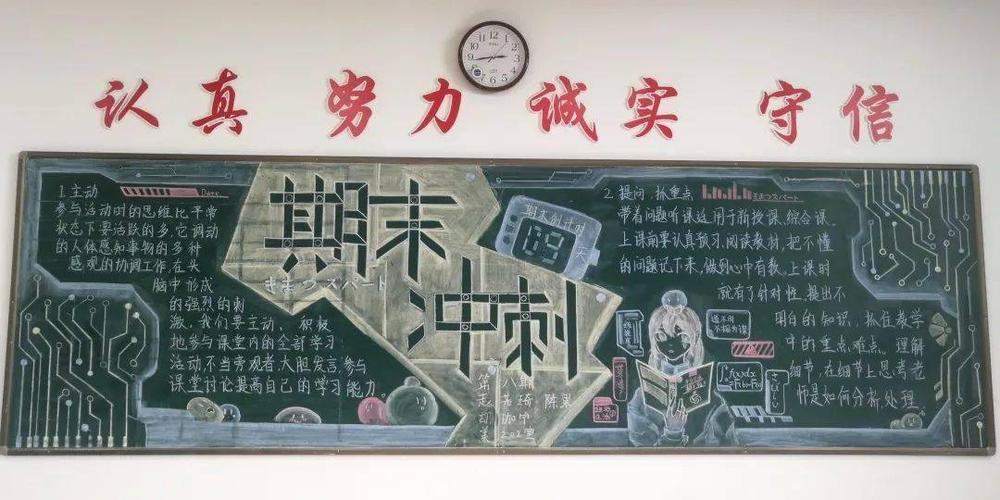 认真 努力 诚实 守信
1.主动
参与活动时的思维比平常
状态下要活跃的多,它调动
的人体感知事物的多种
感观的协调工作,在头
脑中形成
的强烈的刺
激,我们要主动、积极
地参与课堂内的全部学习
活动不当旁观者,大胆发言,参与
课堂讨论提高自己的学习能力。
期末
きまつスパート
冲刺
期末倒计时
09
天
第八期
2.提问、抓重点
きまつスパート
带着问题听课适用于新授课、综合课。
上课前要认真预习,阅读教材,把不懂
的问题记下来,做到心中有数。上课时
就有了针对性,提出不
明白的知识,抓住教学
中的重点难点。理解
细节,在细节上思考老
师是如何分析、处理
道不同
不相为谋
∫f(x)dx